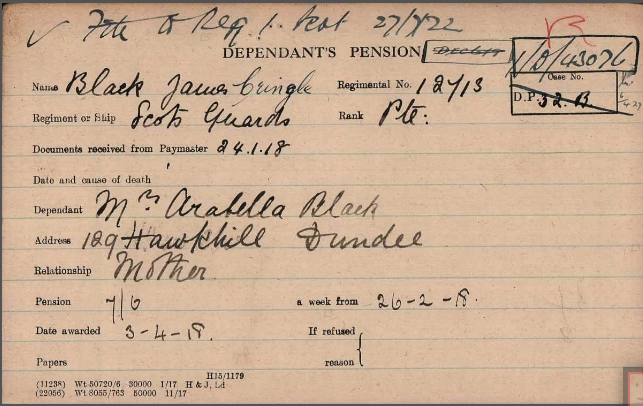 ✓ 7tr to Reg 1. Scot 27/7/22
DEPENDANT'S PENSION
1/D/43076
Case No.
Name Black James Cringle Regimental No. 12713
D.P. 32. B
Regiment or Ship Scots Guards Rank Pte:
Documents received from Paymaster 24.1.18
Date and cause of death
Dependant Mrs Arabella Black
Address 129 Hawkhill Dundee
Relationship Mother
Pension 7/6 a week from 26-2-18.
Date awarded 3-4-18. If refused
Papers reason
H15/1179
(11238) Wt 50720/6 30000 1/17 H & J, Ld
(22056) Wt 8055/763 50000 11/17